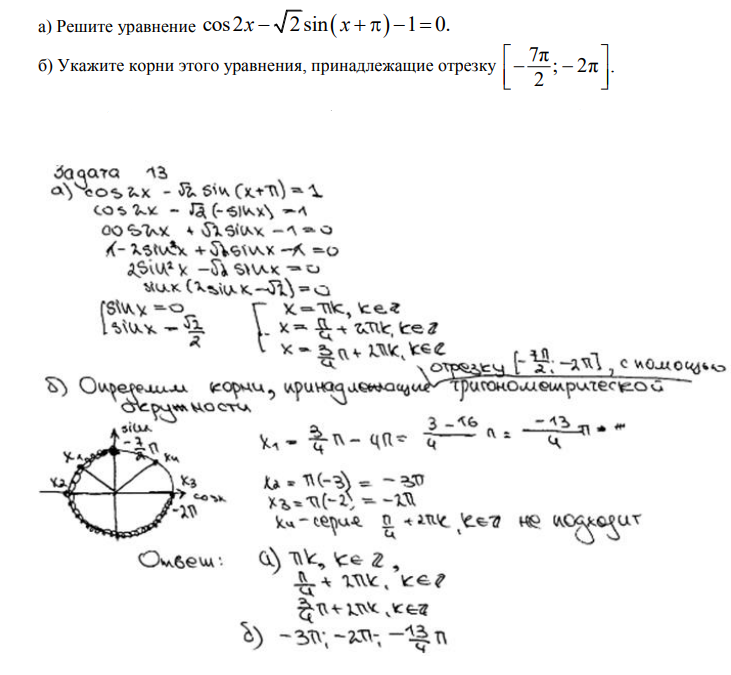 а) Решите уравнение cos2x−√2sin(x+π)−1=0.
б) Укажите корни этого уравнения, принадлежащие отрезку [−7π/2; −2π].
Задача 13
а) cos2x − √2 sin(x+π) = 1
cos2x − √2(−sinx) = 1
cos2x + √2 sinx − 1 = 0
1 − 2sin²x + √2 sinx − 1 = 0
2sin²x − √2 sinx = 0
sinx(2sinx − √2) = 0
[sinx = 0 [x = πk, k∈Z
[sinx = √2/2 [x = π/4 + 2πk, k∈Z
[x = 3/4 π + 2πk, k∈Z
отрезку [−7π/2; −2π], с помощью
б) Определим корни, принадлежащие тригонометрической
окружности
sinx
−7/2 π
x₁
x₄
x₂
x₃
cosx
−2π
x₁ = 3/4 π − 4π = (3−16)/4 π = −13/4 π
x₂ = π(−3) = −3π
x₃ = π(−2) = −2π
x₄ − серия π/4 + 2πk, k∈Z не подходит
Ответ: а) πk, k∈Z,
π/4 + 2πk, k∈Z
3/4 π + 2πk, k∈Z
б) −3π; −2π; −13/4 π